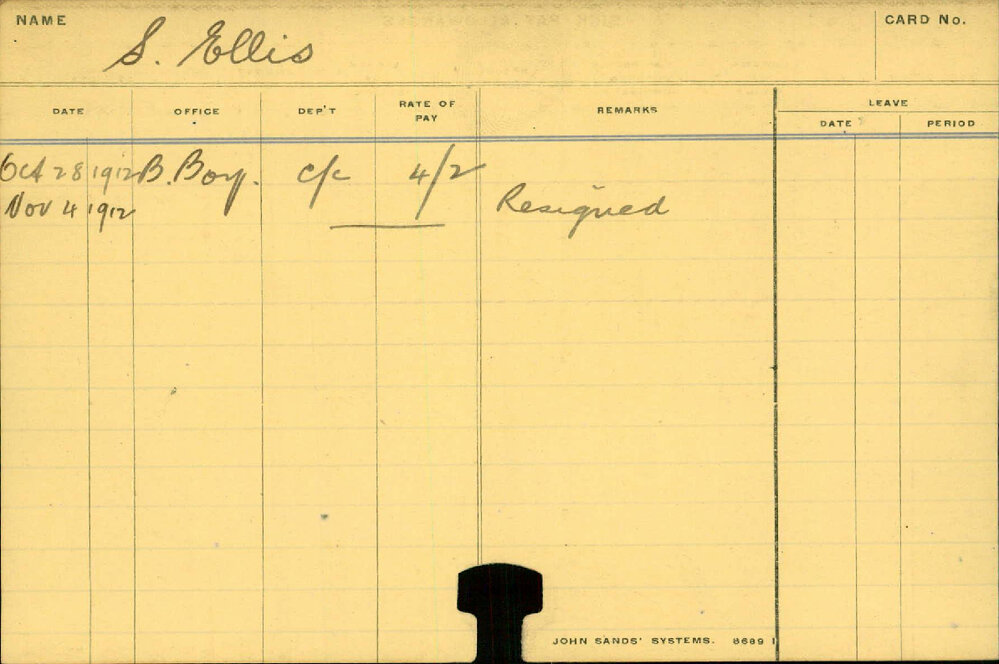 NAME S. Ellis CARD No.
DATE OFFICE DEP'T RATE OF PAY REMARKS LEAVE
DATE PERIOD
Oct 28 1912 B. Boy. c/c 4/2
Nov 4 1912 Resigned
JOHN SANDS' SYSTEMS. 6689 1